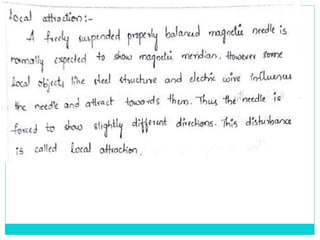 Local attraction:-
A freely suspended properly balanced magnetic needle is
normally expected to show magnetic meridian. However some
local objects like steel structure and electric wire influences
the needle and attract towards them. Thus the needle is
forced to show slightly different directions. This disturbance
is called local attraction.